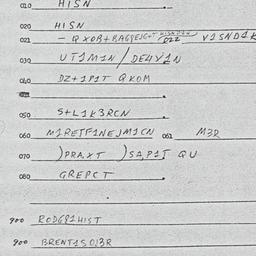 010 HISN
020 HISN
021 - QXOB+BAGPEJC+ 022 VISND1K
030 UT1M1N / DE4Y1N
040 DZ+1P1T QKOM
050 S+L1K3RCN
060 M1RETF1NEJM1CN 061 M3R
070 )PRA.XT )SA,P1I QU
080 GREPCT
900 ROD6R1HIST
900 BRENT1S0J3R